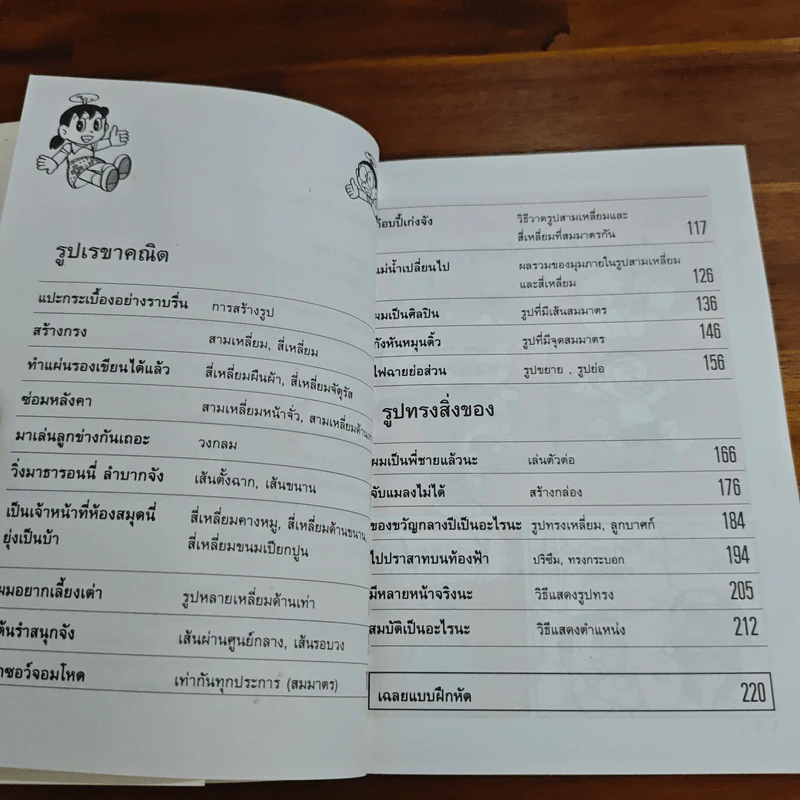 รูปเรขาคณิต
แปะกระเบื้องอย่างราบรื่น การสร้างรูป
สร้างกรง สามเหลี่ยม, สี่เหลี่ยม
ทำแผ่นรองเขียนได้แล้ว สี่เหลี่ยมผืนผ้า, สี่เหลี่ยมจัตุรัส
ซ่อมหลังคา สามเหลี่ยมหน้าจั่ว, สามเหลี่ยมด้านเท่า
มาเล่นลูกข่างกันเถอะ วงกลม
วิ่งมาธารอนนี่ ลำบากจัง เส้นตั้งฉาก, เส้นขนาน
เป็นเจ้าหน้าที่ห้องสมุดนี่ สี่เหลี่ยมคางหมู, สี่เหลี่ยมด้านขนาน,
ยุ่งเป็นบ้า สี่เหลี่ยมขนมเปียกปูน
ผมอยากเลี้ยงเต่า รูปหลายเหลี่ยมด้านเท่า
เต้นรำสนุกจัง เส้นผ่านศูนย์กลาง, เส้นรอบวง
จอมโหด เท่ากันทุกประการ (สมมาตร)
ก๊อบปี้เก่งจัง วิธีวาดรูปสามเหลี่ยมและ
สี่เหลี่ยมที่สมมาตรกัน 117
แม่น้ำเปลี่ยนไป ผลรวมของมุมภายในรูปสามเหลี่ยม
และสี่เหลี่ยม 126
ผมเป็นศิลปิน รูปที่มีเส้นสมมาตร 136
กังหันหมุนติ้ว รูปที่มีจุดสมมาตร 146
ไฟฉายย่อส่วน รูปขยาย , รูปย่อ 156
รูปทรงสิ่งของ
ผมเป็นพี่ชายแล้วนะ เล่นตัวต่อ 166
จับแมลงไม่ได้ สร้างกล่อง 176
ของขวัญกลางปีเป็นอะไรนะ รูปทรงเหลี่ยม, ลูกบาศก์ 184
ไปปราสาทบนท้องฟ้า ปริซึม, ทรงกระบอก 194
มีหลายหน้าจริงนะ วิธีแสดงรูปทรง 205
สมบัติเป็นอะไรนะ วิธีแสดงตำแหน่ง 212
เฉลยแบบฝึกหัด 220